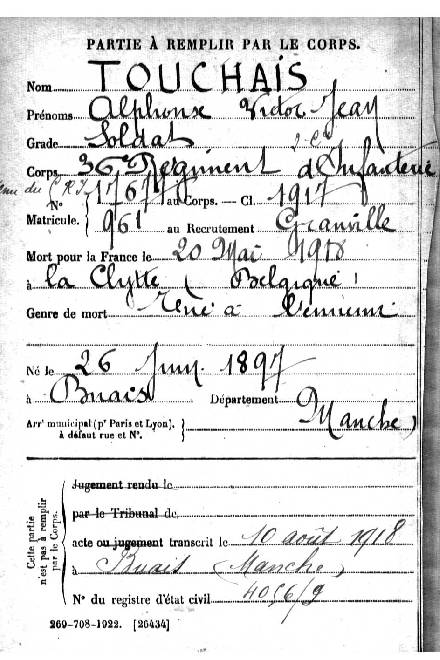 PARTIE À REMPLIR PAR LE CORPS.
Nom TOUCHAIS
Prénoms Alphonse Victor Jean
Grade Soldat 2e Cl
Corps 36e Régiment d'Infanterie
N° 17677 au Corps. — Cl. 1917
Matricule. 961 au Recrutement Granville
Mort pour la France le 20 Mai 1918
à la Clytte ( Belgique )
Genre de mort Tué à l'ennemi
Né le 26 Juin 1897
à Buais Département Manche
Arrt municipal (pr Paris et Lyon).
à défaut rue et N°.
Cette partie n'est pas à remplir par le Corps.
Jugement rendu le
par le Tribunal de
acte ou jugement transcrit le 10 août 1918
à Buais (Manche)
N° du registre d'état civil
269-708-1922. [26434]